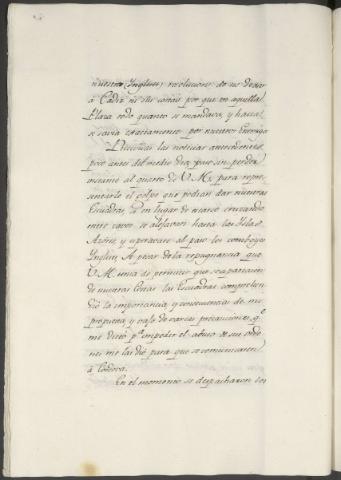 nuestro Ingles, resolucion de no dexar
à Cadiz ni sus costas por que en aquella
Plaza todo quanto se mandava, y hacia
se savia exactamente por nuestro Enemigo
Recividas las noticias antecedentes
poco antes del medio dia, pase sin perder
instante al quarto de V. M. para repre-
sentarle el golpe que podian dar nuestras
Escuadras, si en lugar de estarse cruzando
entre cavos se alejasen hasta las Yslas
Azores, y esperasen al paso los comboyes
Yngleses. A pesar de la repugnancia que
V. M. tenia de permitir que se apartasen
de nuestras Costas las Escuadras comprehen-
dió la importancia, y consecuencias de mi
propuesta, y vajo de varias precauciones qᵉ
me dictó pᵃ impedir el abuso de sus orde-
nes me las dió para que se comunicasen
à Cordova.
En el momento se despacharon los